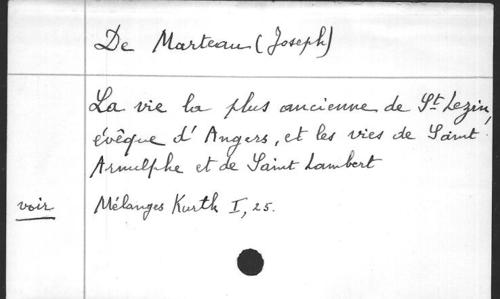 De Marteau (Joseph)
La vie la plus ancienne de St. Lezin,
évêque d'Angers, et les vies de Saint
Arnulphe et de Saint Lambert
voir Mélanges Kurth I, 25.